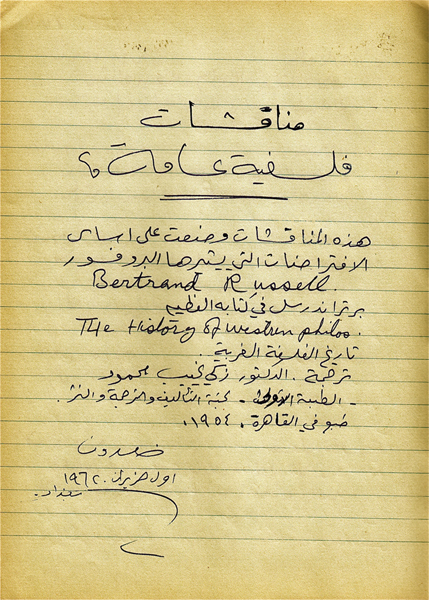 مناقشات
فلسفية عامة
هذه المناقشات وضعت على اساس
الافتراضات التي يثيرها البروفسور
Bertrand Russell.
برتراند رسل في كتابه العظيم
The History Of Western philos.
تاريخ الفلسفة الغربية.
ترجمة. الدكتور زكي نجيب محمود
- الطبعة الاولى - لجنة التأليف والترجمة والنشر.
طبع في القاهرة. ١٩٥٤.
اول حزيران. ١٩٦٢
بغداد.